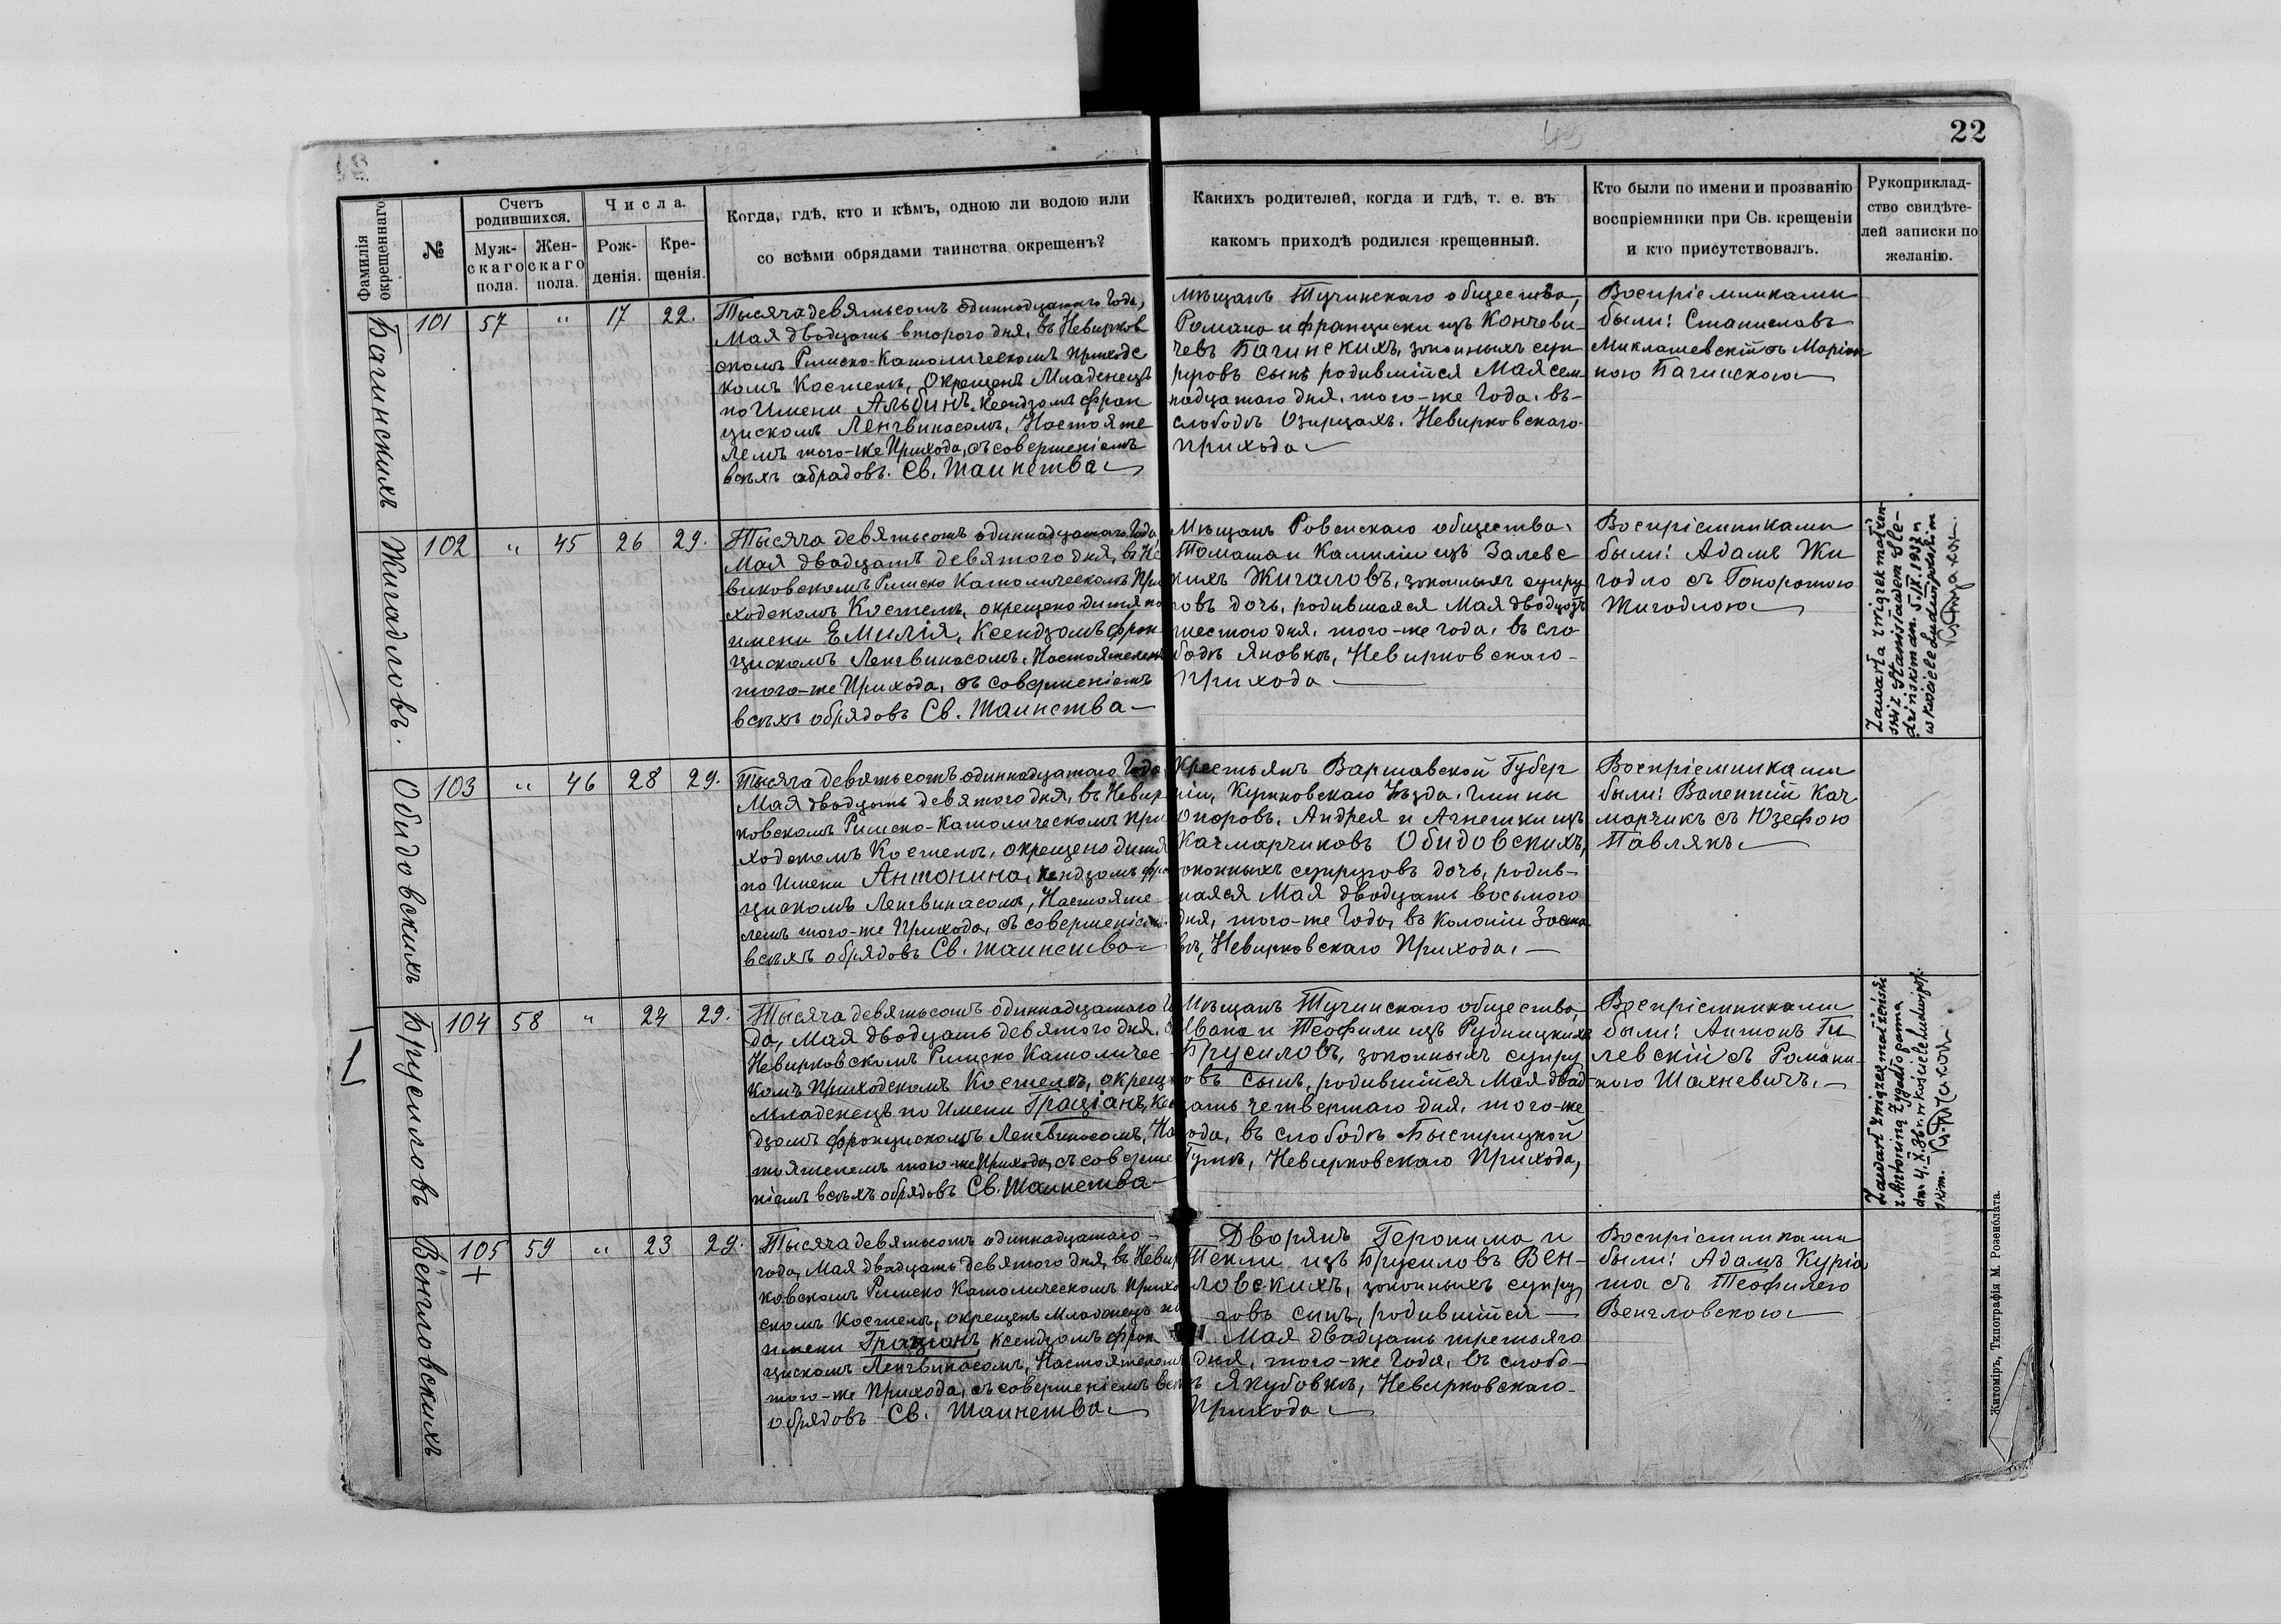 22
Фамилія окрещеннаго
№
Счетъ родившихся.
Мужскаго пола.
Женскаго пола.
Числа.
Рожденія.
Крещенія.
Когда, гдѣ, кто и кѣмъ, одною ли водою или
со всѣми обрядами таинства окрещенъ?
Какихъ родителей, когда и гдѣ, т. е. въ
какомъ приходѣ родился крещенный.
Кто были по имени и прозванію
воспріемники при Св. крещеніи
и кто присутствовалъ.
Рукоприклад-
ство свидѣте-
лей записки по
желанію.
Багинскихъ
101 57 " 17 22.
Тысяча девятьсотъ одиннадцатаго Года,
Мая двадцать второго дня, въ Невирков
скомъ Римско-Католическомъ Приходс
комъ Костелѣ, Окрещенъ Младенецъ
по Имени Альбинъ, Ксендзомъ Фран
цискомъ Ленгвинасомъ, Настояте
лемъ того-же Прихода, съ совершеніемъ
всѣхъ обрядовъ. Св. Таинства
Мѣщанъ Тучинскаго общества,
Романа и Франциски изъ Кончеви-
чевъ Багинскихъ, законныхъ суп
руговъ сынъ родившійся Мая сем
надцатаго дня, того-же Года, въ-
слободѣ Озирцахъ, Невирковскаго
Прихода
Воспріемниками
были: Станиславъ
Миклашевскій съ Маріан
ною Багинскою
Жигадловъ.
102 " 45 26 29.
Тысяча девятьсотъ одиннадцатаго Года
Мая двадцать девятого дня, въ Не
вирковскомъ Римско Католическомъ При
ходскомъ Костелѣ, окрещено дитя по
имени Емилія, Ксендзомъ Фран
цискомъ Ленгвинасомъ, Настоятелемъ
того-же Прихода, съ совершеніемъ
всѣхъ обрядовъ Св. Таинства-
Мѣщанъ Ровенскаго общества,
Томаша и Камиліи изъ Залевс
кихъ Жигаловъ, законныхъ супру
говъ дочь, родившаяся Мая двадцать
шестого дня, того-же года, въ сло
бодѣ Яновкѣ, Невирковскаго-
Прихода
Воспріемниками
были: Адамъ Жи
гадло съ Гоноратою
Жигодлою
Zawarła związek małżeń-
ski z Stanisławem Śle-
dzińskim dn. 5.IX.1937 r.
w kościele Ludwipolskim
Обидовскихъ
103 " 46 28 29.
Тысяча девятьсотъ одиннадцатаго Года,
Мая двадцать девятого дня, въ Невир
ковскомъ Римско-Католическомъ При
ходскомъ Костелѣ, окрещено дитя
по Имени Антонина, Ксендзомъ Фран
цискомъ Ленгвинасомъ, Настояте
лемъ того-же Прихода, съ совершеніемъ
всѣхъ обрядовъ Св. Таинства
Крестьянъ Варшавской Губер
ніи, Кутновскаго Уѣзда, Гмины
Опоровъ, Андрея и Агнешки изъ
Качмарчиковъ Обидовскихъ,
законныхъ супруговъ дочь, родив-
шаяся Мая двадцать восьмого
дня, того-же Года, въ Колоніи Заста
вѣ, Невирковскаго Прихода.
Воспріемниками
были: Валентій Кач
марчикъ съ Юзефою
Павлякъ
Брусиловъ
104 58 " 24 29.
Тысяча девятьсотъ одиннадцатаго Го
да, Мая двадцать девятого дня, въ
Невирковскомъ Римско Католичес
комъ Приходскомъ Костелѣ, окрещенъ
Младенецъ по Имени Граціанъ, Ксен
дзомъ Францискомъ Ленгвинасомъ, Нас
тоятелемъ того-же Прихода, съ соверше
ніемъ всѣхъ обрядовъ Св. Таинства-
Мѣщанъ Тучинскаго общества,
Ивана и Теофили изъ Рудницкихъ
Брусиловъ, законныхъ супру
говъ сынъ, родившійся Мая двад
цать четвертаго дня, того-же
Года, въ слободѣ Быстрицкой
Гутѣ, Невирковскаго Прихода,
Воспріемниками
были: Антонъ Ги
левскій съ Романи-
ною Шахневичъ.
Zawarł związek małżeński
z Antoniną Żygadło panna
dn. 4.X.36 r. w kościele Ludwipol-
skim.
Венгловскихъ
105 59 " 23 29.
Тысяча девятьсотъ одиннадцатаго-
года, Мая двадцать девятого дня, въ Невир
ковскомъ Римско Католическомъ Приход
скомъ Костелѣ, окрещенъ Младенецъ по
имени Граціанъ, Ксендзомъ Фран
цискомъ Ленгвинасомъ, Настоятелемъ
того-же Прихода, съ совершеніемъ всѣхъ
обрядовъ Св. Таинства
Дворянъ Геронима и
Текли изъ Брусиловъ Вен-
гловскихъ, законныхъ супру
говъ сынъ, родившійся
Мая двадцать третьяго
дня, того-же Года, въ слобо-
дѣ Якубовкѣ, Невирковскаго
Прихода
Воспріемниками
были: Адамъ Куріа
та съ Теофилею
Венгловскою
Житоміръ, Типографія М. Розенблата.